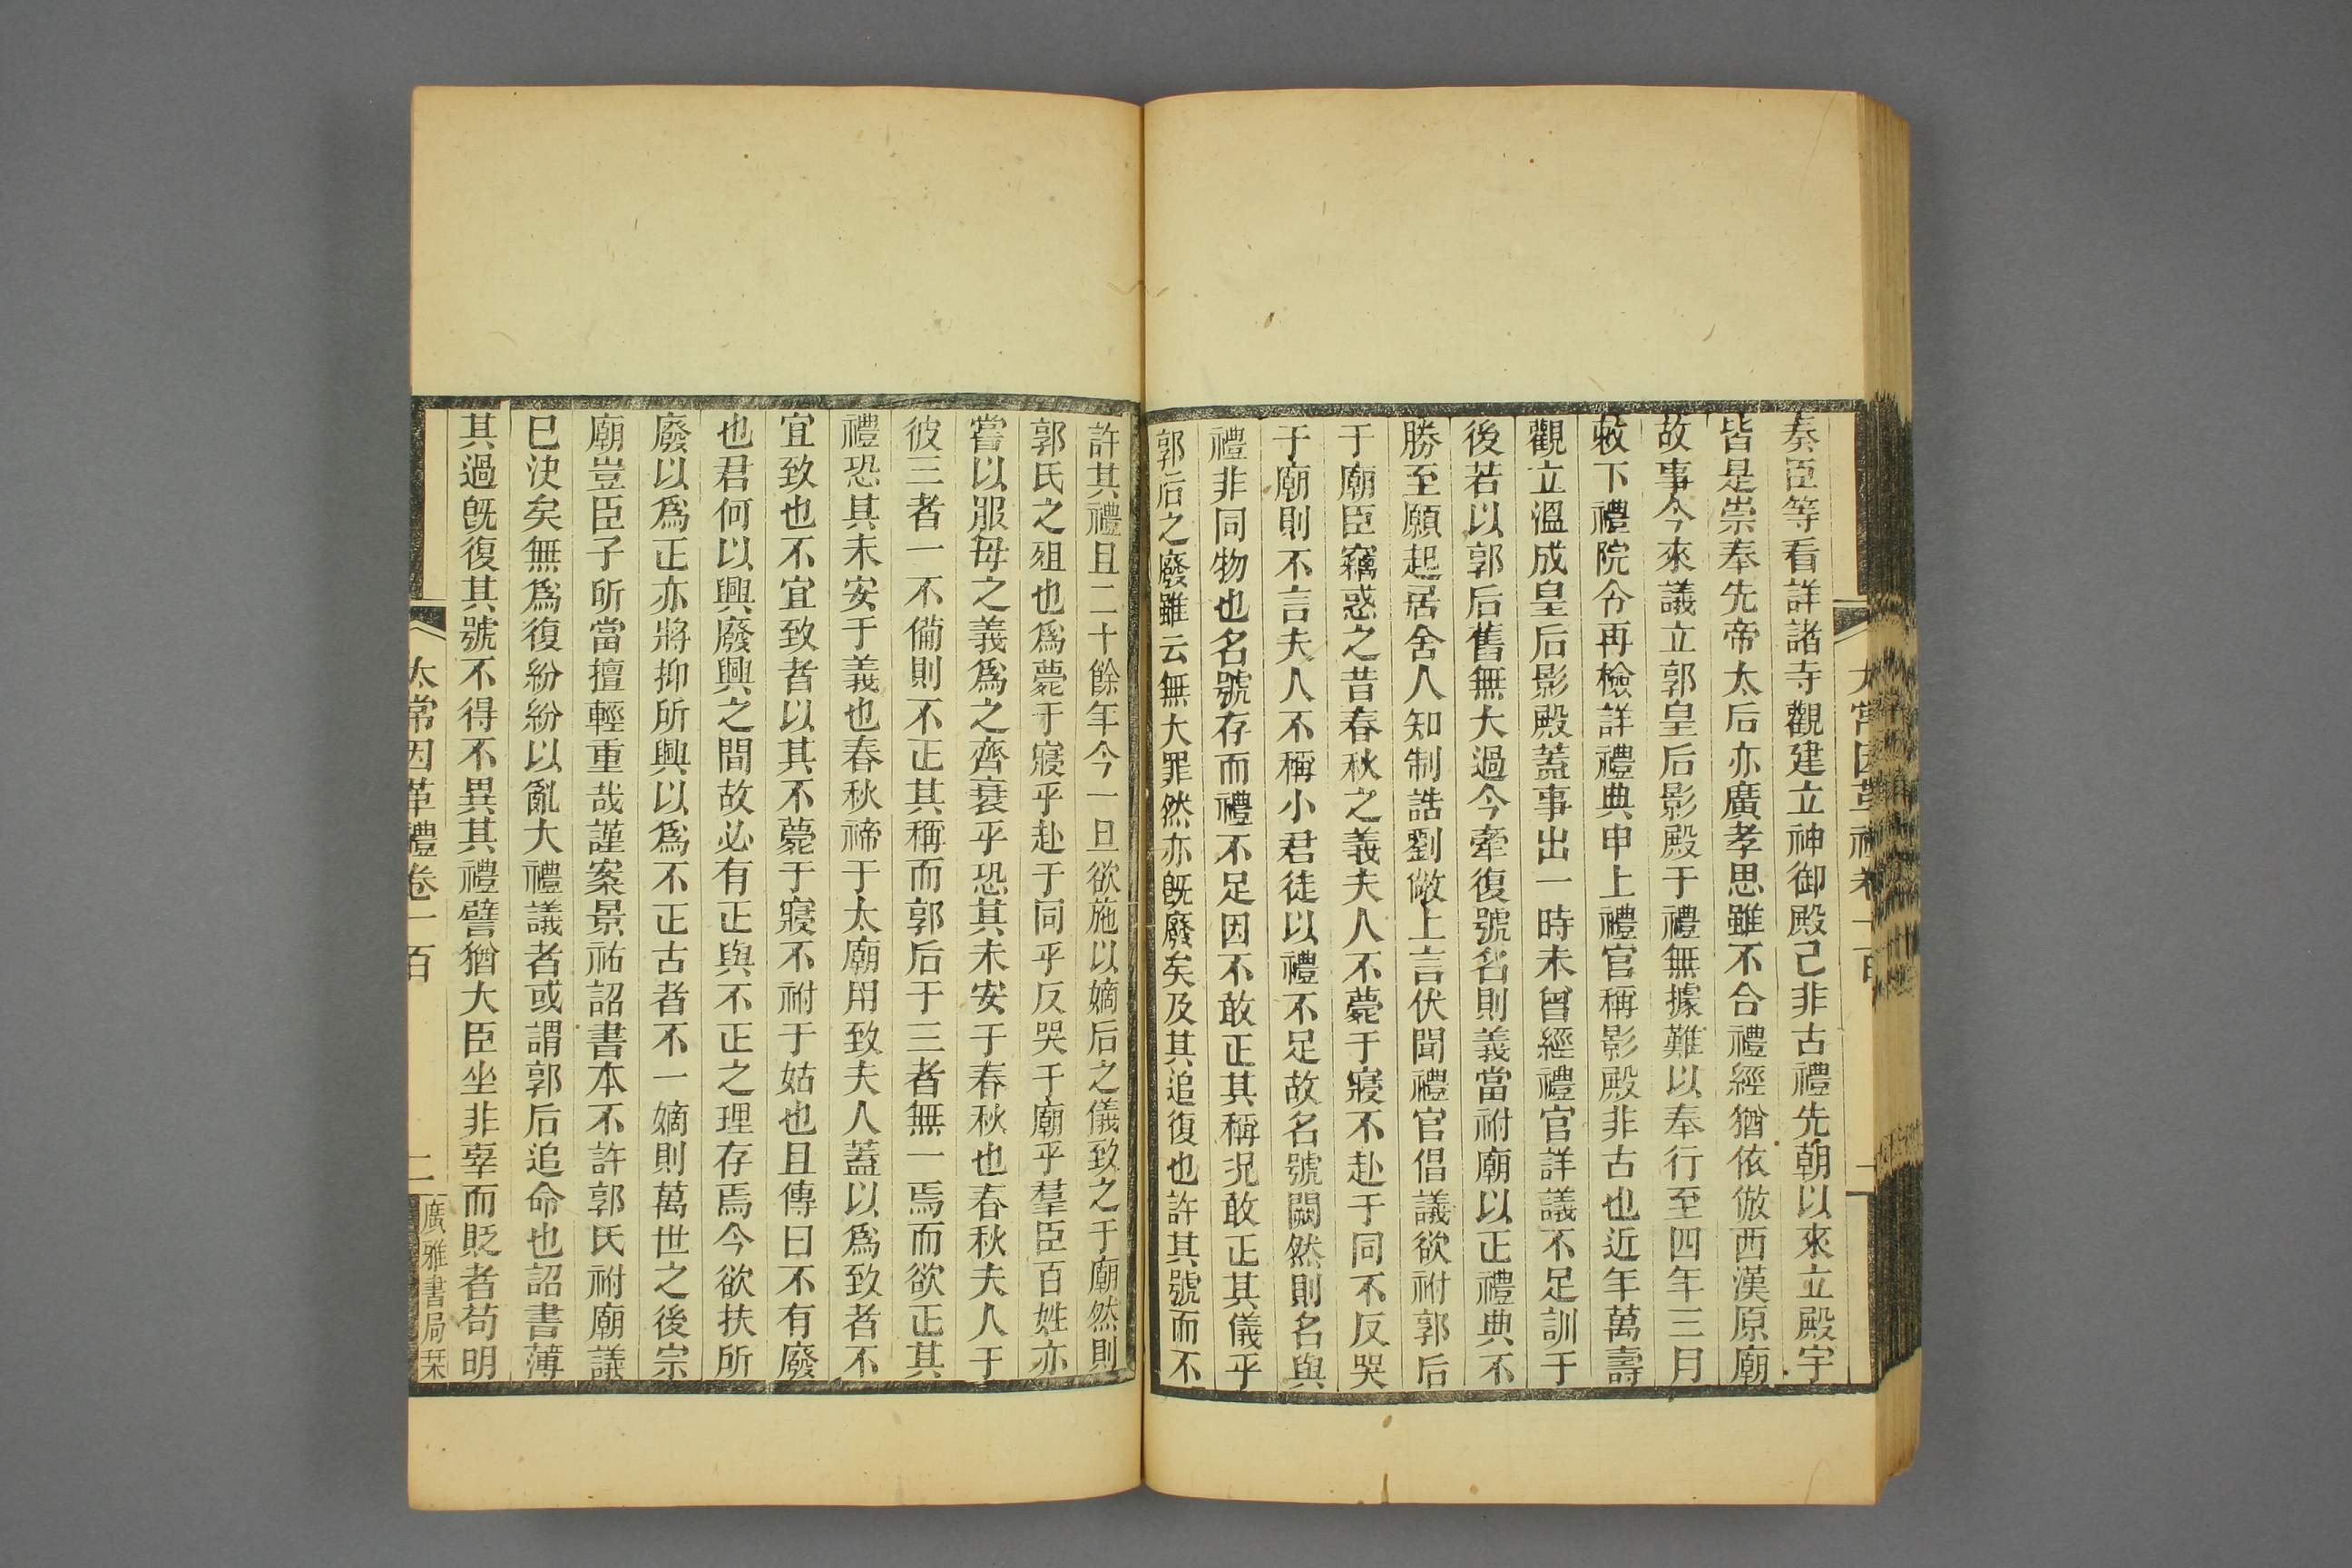 奏臣等看詳諸寺觀建立神御殿己非古禮先朝以來立殿宇
皆是崇奉先帝太后亦廣孝思雖不合禮經猶依倣西漢原廟
故事今來議立郭皇后影殿于禮無據難以奉行至四年三月
敕下禮院令再檢詳禮典申上禮官稱影殿非古也近年萬壽
觀立溫成皇后影殿蓋事出一時未曾經禮官詳議不足訓于
後若以郭后舊無大過今牽復號名則義當祔廟以正禮典不
勝至願起居舍人知制誥劉敞上言伏聞禮官倡議欲祔郭后
于廟臣竊惑之昔春秋之義夫人不薨于寢不赴于同不反哭
于廟則不言夫人不稱小君徒以禮不足故名號闕然則名與
禮非同物也名號存而禮不足因不敢正其稱況敢正其儀乎
郭后之廢雖云無大罪然亦旣廢矣及其追復也許其號而不
許其禮且二十餘年今一旦欲施以嫡后之儀致之于廟然則
郭氏之殂也爲薨于寢乎赴于同乎反哭于廟乎羣臣百姓亦
嘗以服母之義爲之齊衰乎恐其未安于春秋也春秋夫人于
彼三者一不備則不正其稱而郭后于三者無一焉而欲正其
禮恐其未安于義也春秋禘于太廟用致夫人蓋以爲致者不
宜致也不宜致者以其不薨于寢不祔于姑也且傳曰不有廢
也君何以興廢興之間故必有正與不正之理存焉今欲扶所
廢以爲正亦將抑所興以爲不正古者不一嫡則萬世之後宗
廟豈臣子所當擅輕重哉謹案景祐詔書本不許郭氏祔廟議
已決矣無爲復紛紛以亂大禮議者或謂郭后追命也詔書薄
其過旣復其號不得不異其禮譬猶大臣坐非辜而貶者苟明
太常因革禮卷一百
二
廣雅書局栞